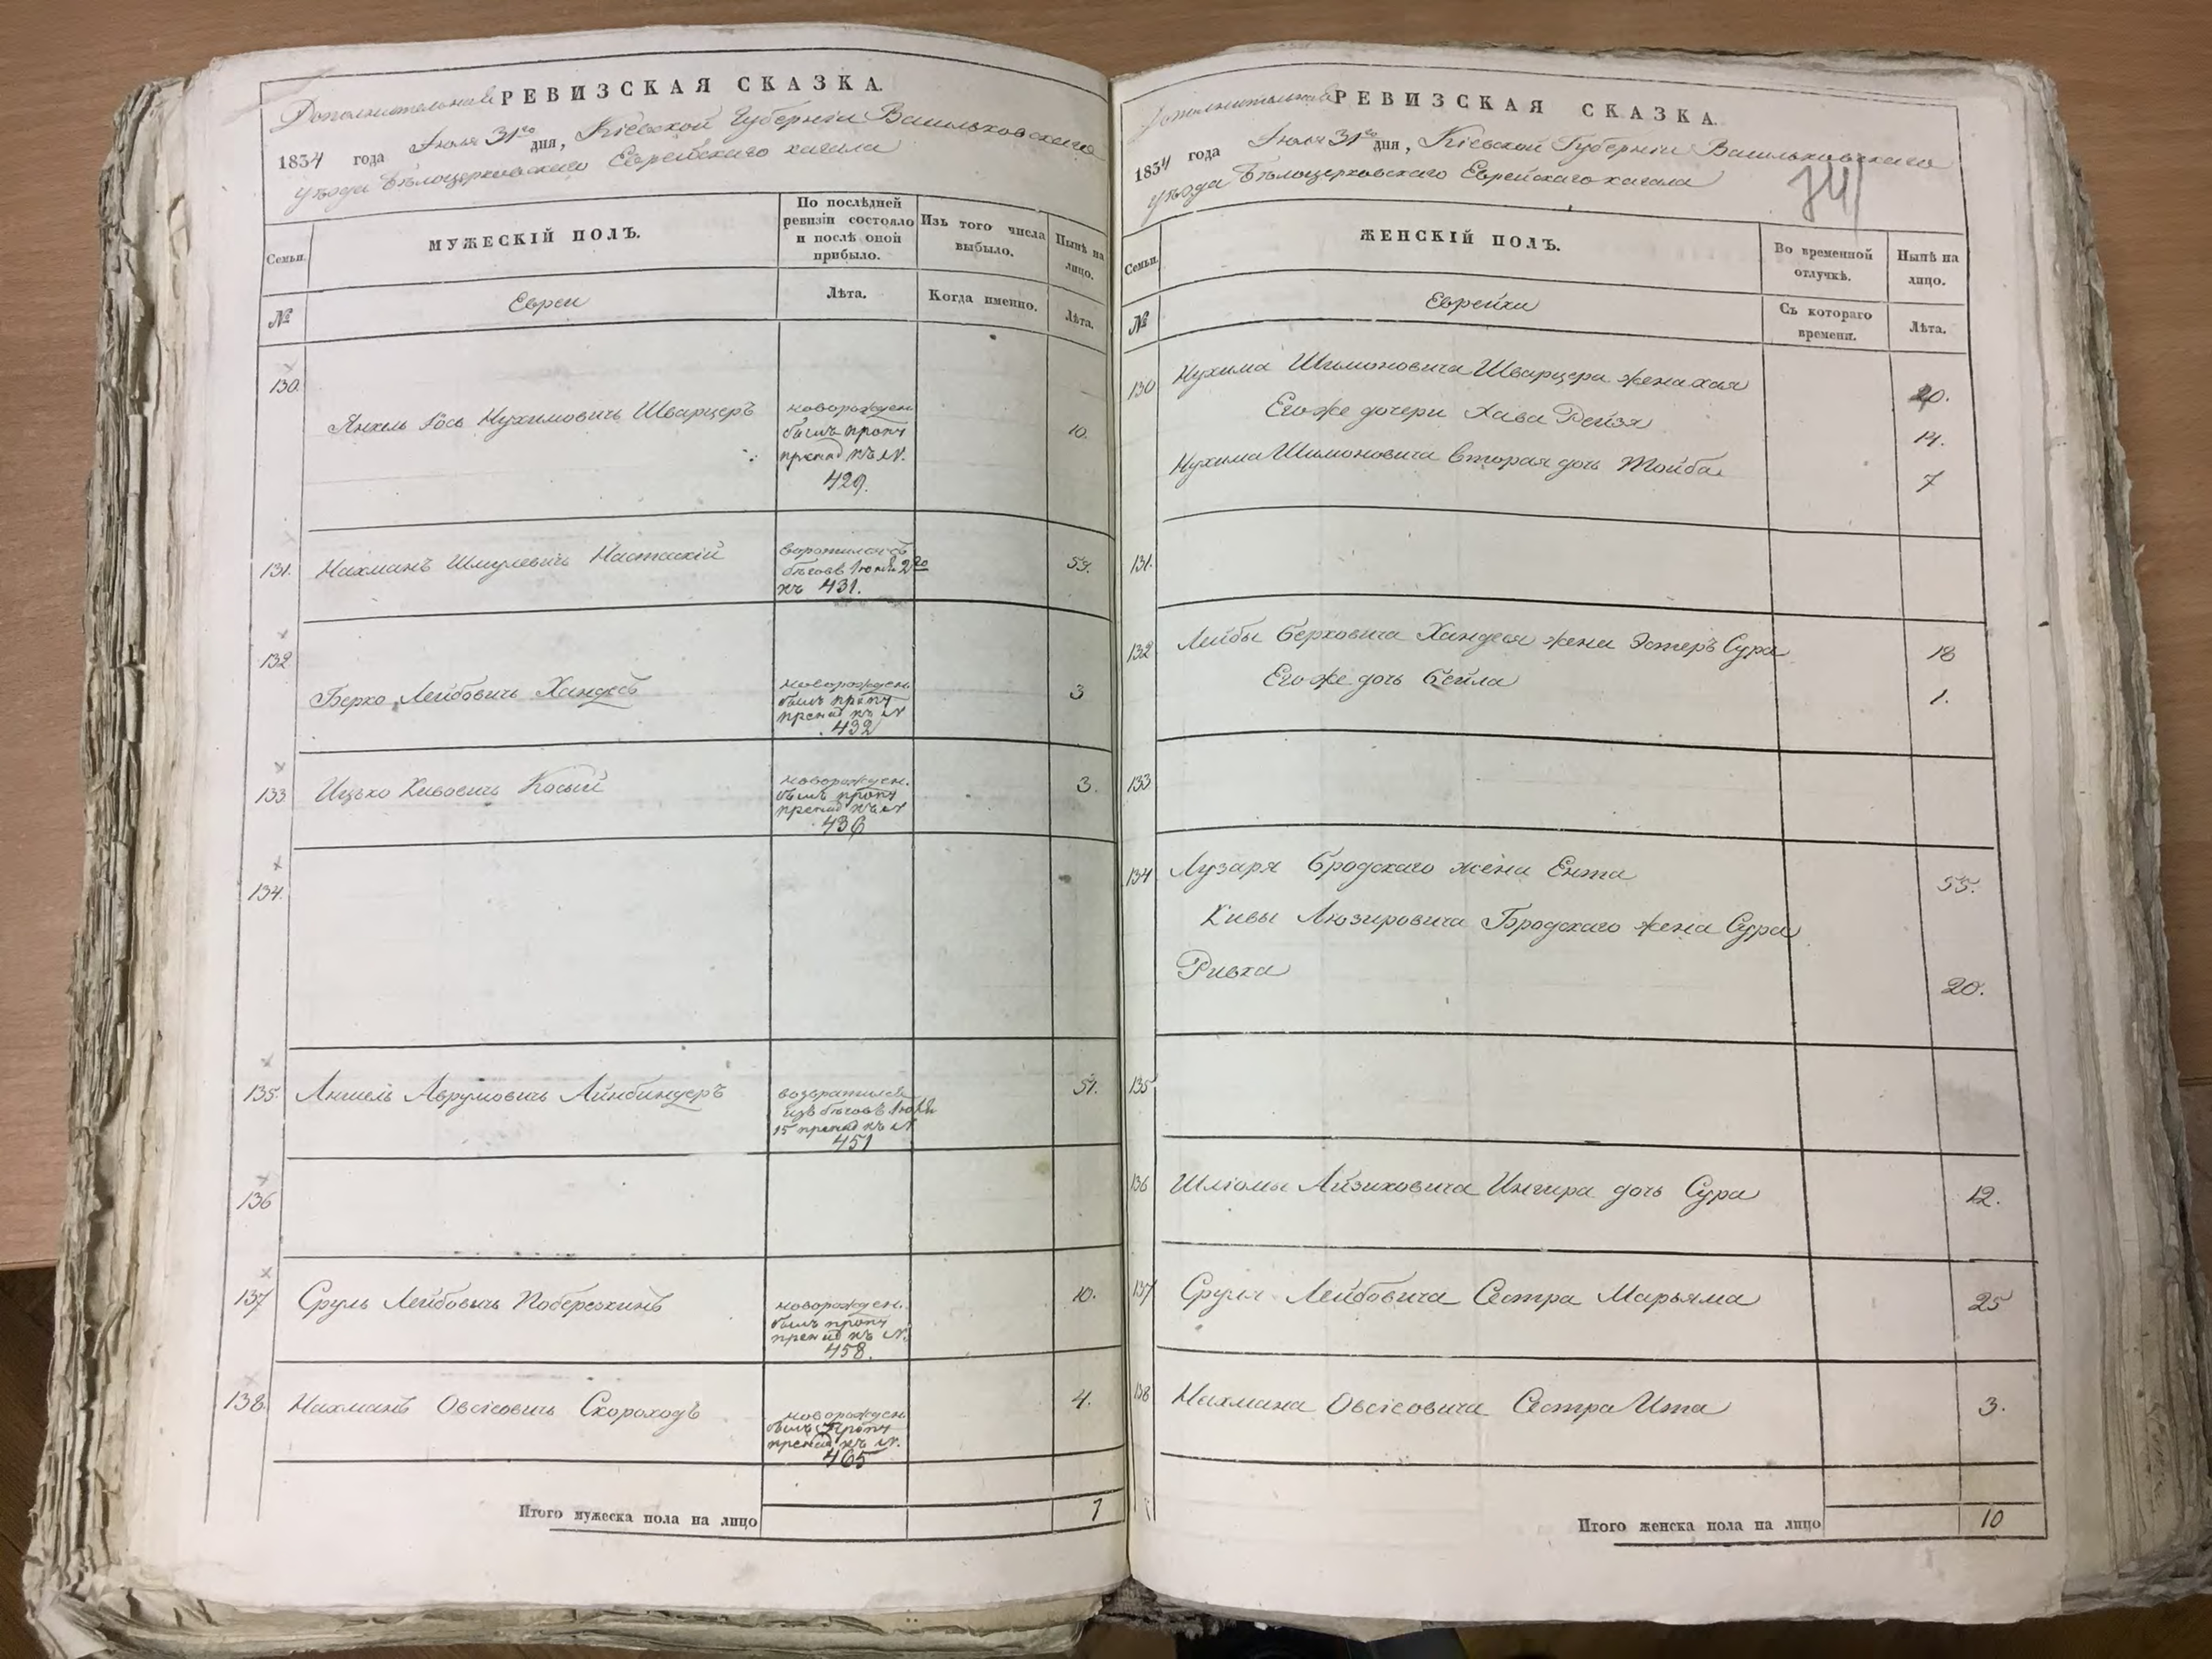 Дополнительная РЕВИЗСКАЯ СКАЗКА.
1834 года Июля 31го дня, Кіевской Губерніи Васильковскаго
уѣзда Бѣлоцерковскаго Еврейскаго кагала
Семьи.
МУЖЕСКІЙ ПОЛЪ.
По послѣдней
ревизіи состояло
и послѣ оной
прибыло.
Изъ того числа
выбыло.
Нынѣ на
лицо.
№
Евреи
Лѣта.
Когда именно.
Лѣта.
130.
Янкель Іось Нухимовичь Шварцеръ
новорожден.
былъ проп
къ №.
429.
10.
131. Нахманъ Шмулевичь
2го
къ 431.
53.
132
Берко Лейбовичь Хандесъ
новорожден.
былъ проп
къ №
432
3
133 Ицько Кивовичь Косый
новорожден.
былъ проп
къ №
436
3.
134.
135. Аншель Аврумовичь Айнбиндеръ
возвратился
изъ бѣговъ
15 къ №
451
51.
136
137 Сруль Лейбовичь Побережкинъ
новорожден.
былъ проп
къ №.
458.
10.
138. Нахманъ Овсіовичь Скороходъ
новорожден
былъ проп
къ №.
465
4.
Итого мужеска пола на лицо
7
Дополнительная РЕВИЗСКАЯ СКАЗКА.
1834 года Июля 31го дня, Кіевской Губерніи Васильковскаго
уѣзда Бѣлоцерковскаго Еврейскаго кагала
741
Семьи.
ЖЕНСКІЙ ПОЛЪ.
Во временной
отлучкѣ.
Нынѣ на
лицо.
№
Еврейки
Съ котораго
времени.
Лѣта.
130 Нухима Шимоновича Шварцера жена Хая
Его же дочери Хава Рейзя
14.
Нухима Шимоновича вторая дочь Тойба
7
131.
132 Лейбы Берковича Хандеся жена Эстеръ Сура
18
Его же дочь Бейла
1.
133
134 Лузаря Бродскаго жена Ента
55.
Кивы Люзировича Бродскаго жена Сура
Ривка
20.
135
136 Шліомы Айзиковича дочь Сура
12.
137 Сруля Лейбовича Сестра Марьяма
25
138 Нахмана Овсіовича Сестра Ита
3.
Итого женска пола на лицо
10